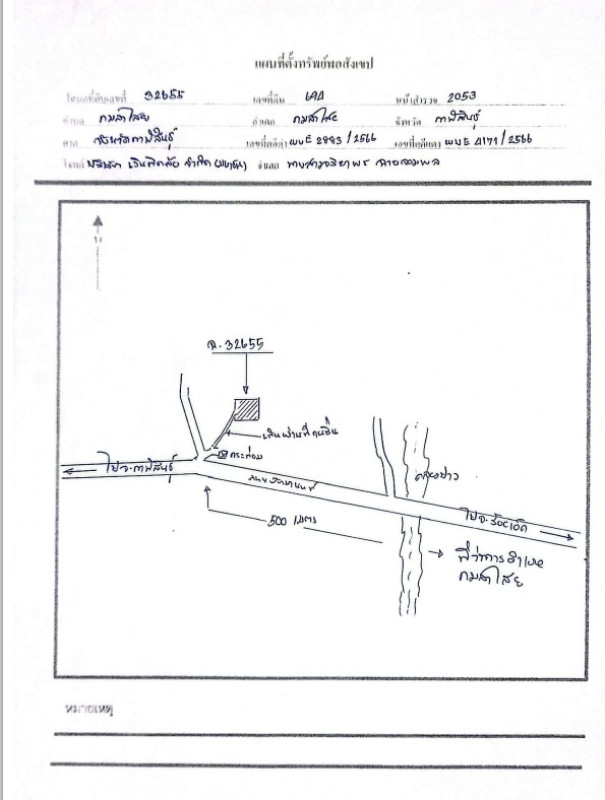 แผนที่ตั้งทรัพย์พอสังเขป
โฉนดที่ดินเลขที่ 32655 เลขที่ดิน หน้าสำรวจ 2053
ตำบล กมลาไสย อำเภอ กมลาไสย จังหวัด กาฬสินธุ์
ศาล จังหวัดกาฬสินธุ์ เลขที่คดีดำ ผบE 2883/2566 เลขที่คดีแดง ผบE 4171/2566
โจทก์ จำเลย นางสาวอริยาพร
น
ฉ.32655
เดินผ่านที่คนอื่น
กระท่อม
ไปจ.กาฬสินธุ์
ถนนถีนานนท์
คลองขาว
500 เมตร
ไปจ.ร้อยเอ็ด
ที่ว่าการอำเภอ
กมลาไสย
หมายเหตุ